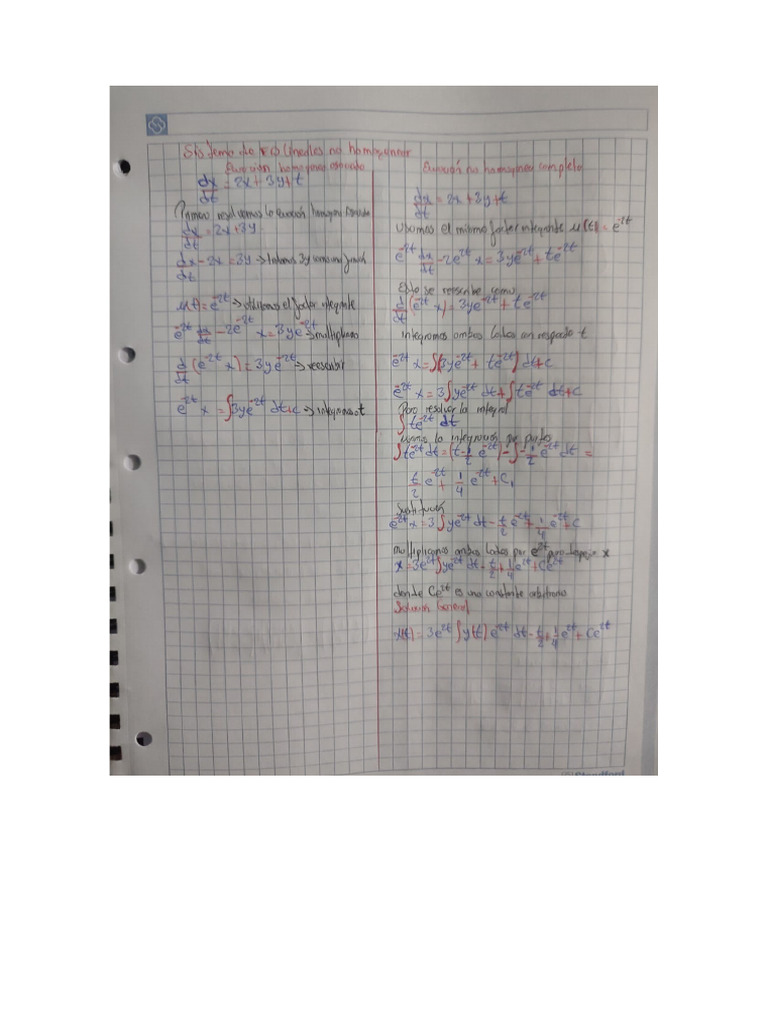 Sistema de ED lineales no homogeneas
Ecuación homogenea asociada
dx/dt = 2x + 3y + t
Primero resolvemos la ecuación homogenea asociada
dx/dt = 2x + 3y
dx/dt - 2x = 3y → tratamos 3y como una
μ(t) = e^-2t → obtenemos el factor integrante
e^-2t dx/dt - 2e^-2t x = 3ye^-2t → multiplicamos
d/dt (e^-2t x) = 3ye^-2t → reescribir
e^-2t x = ∫3ye^-2t dt + c → integramos t
Ecuación no homogenea completa
dx/dt = 2x + 3y + t
Usamos el mismo factor integrante μ(t) = e^-2t
e^-2t dx/dt - 2e^-2t x = 3ye^-2t + te^-2t
Esto se reescribe como
d/dt (e^-2t x) = 3ye^-2t + te^-2t
integramos ambos lados con respecto t
e^-2t x = ∫(3ye^-2t + te^-2t) dt + c
e^-2t x = 3∫ye^-2t dt + ∫te^-2t dt + c
Para resolver la integral
∫te^-2t dt
usamos la integración por partes
∫te^-2t dt = (t - 1/2 e^-2t) - ∫ - 1/2 e^-2t dt =
t/2 e^-2t + 1/4 e^-2t + C₁
Sustituimos
e^-2t x = 3∫ye^-2t dt - t/2 e^-2t + 1/4 e^-2t + C
multiplicamos ambos lados por e^2t para despejar x
x = 3e^2t ∫ye^-2t dt - t/2 + 1/4 e^2t + Ce^2t
donde Ce^2t es una constante arbitraria
Solución General
x(t) = 3e^2t ∫y(t) e^-2t dt - t/2 + 1/4 e^2t + Ce^2t